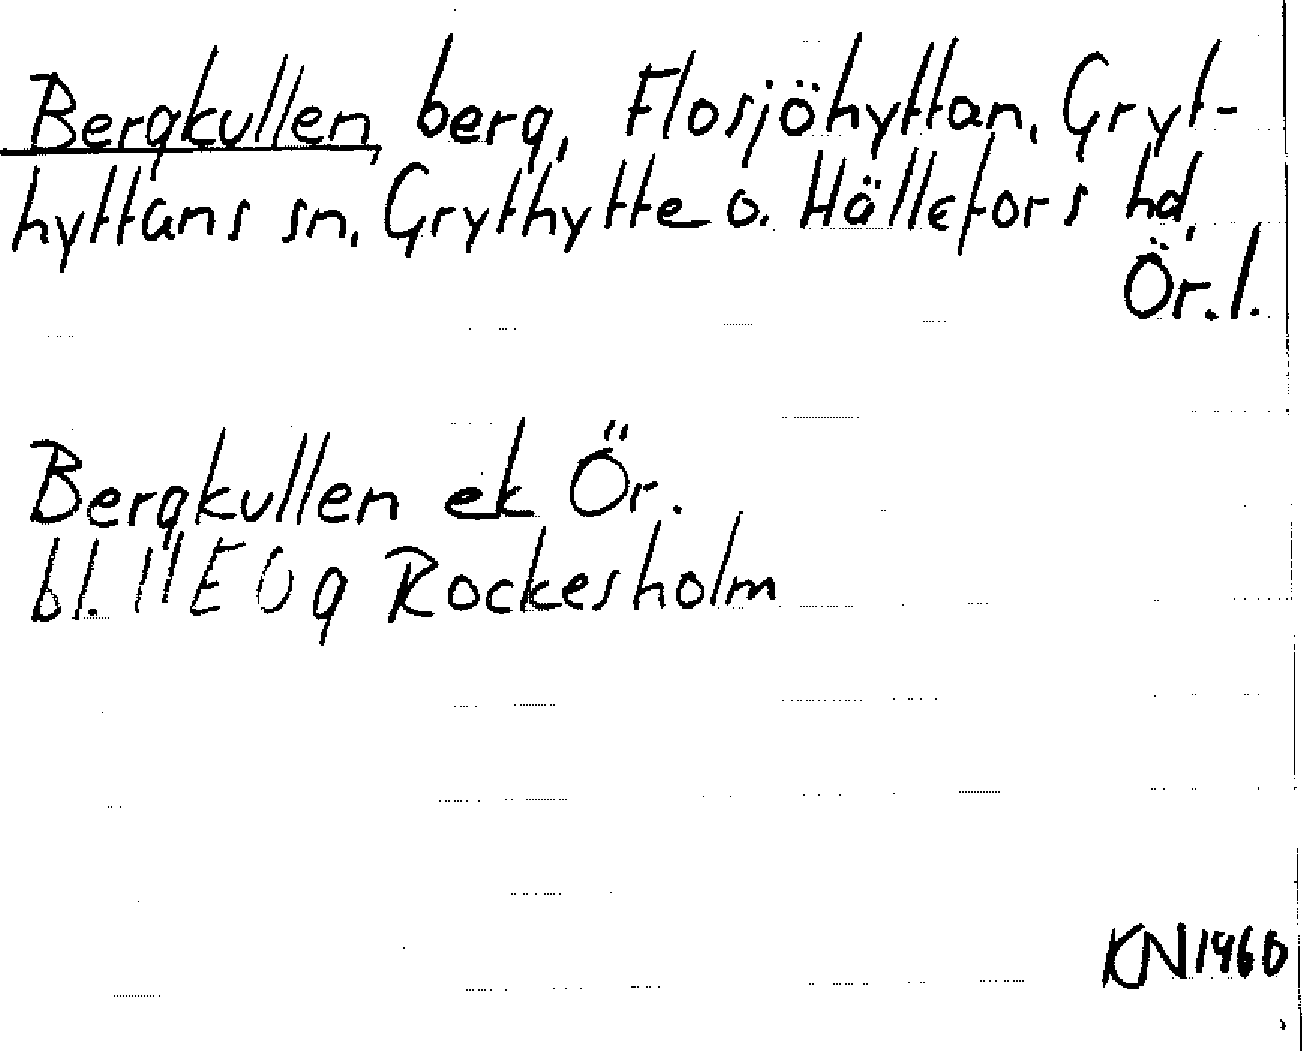 Bergkullen, berg, Flosjöhyttan, Gryt-
hyttans sn, Grythytte o. Hällefors hd,
Ör. l.
Bergkullen ek Ör.
bl. 11E 0g Rockesholm
KN 1960